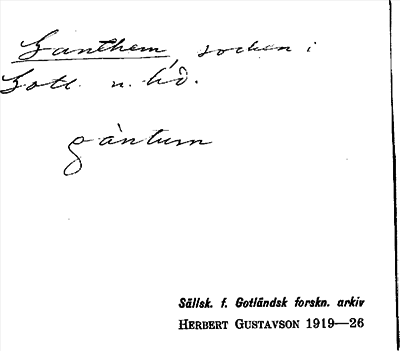 Ganthem, socken i
Gotl. n. hd.
gàntum
Sällsk. f. Gotländsk forskn. arkiv
HERBERT GUSTAVSON 1919—26